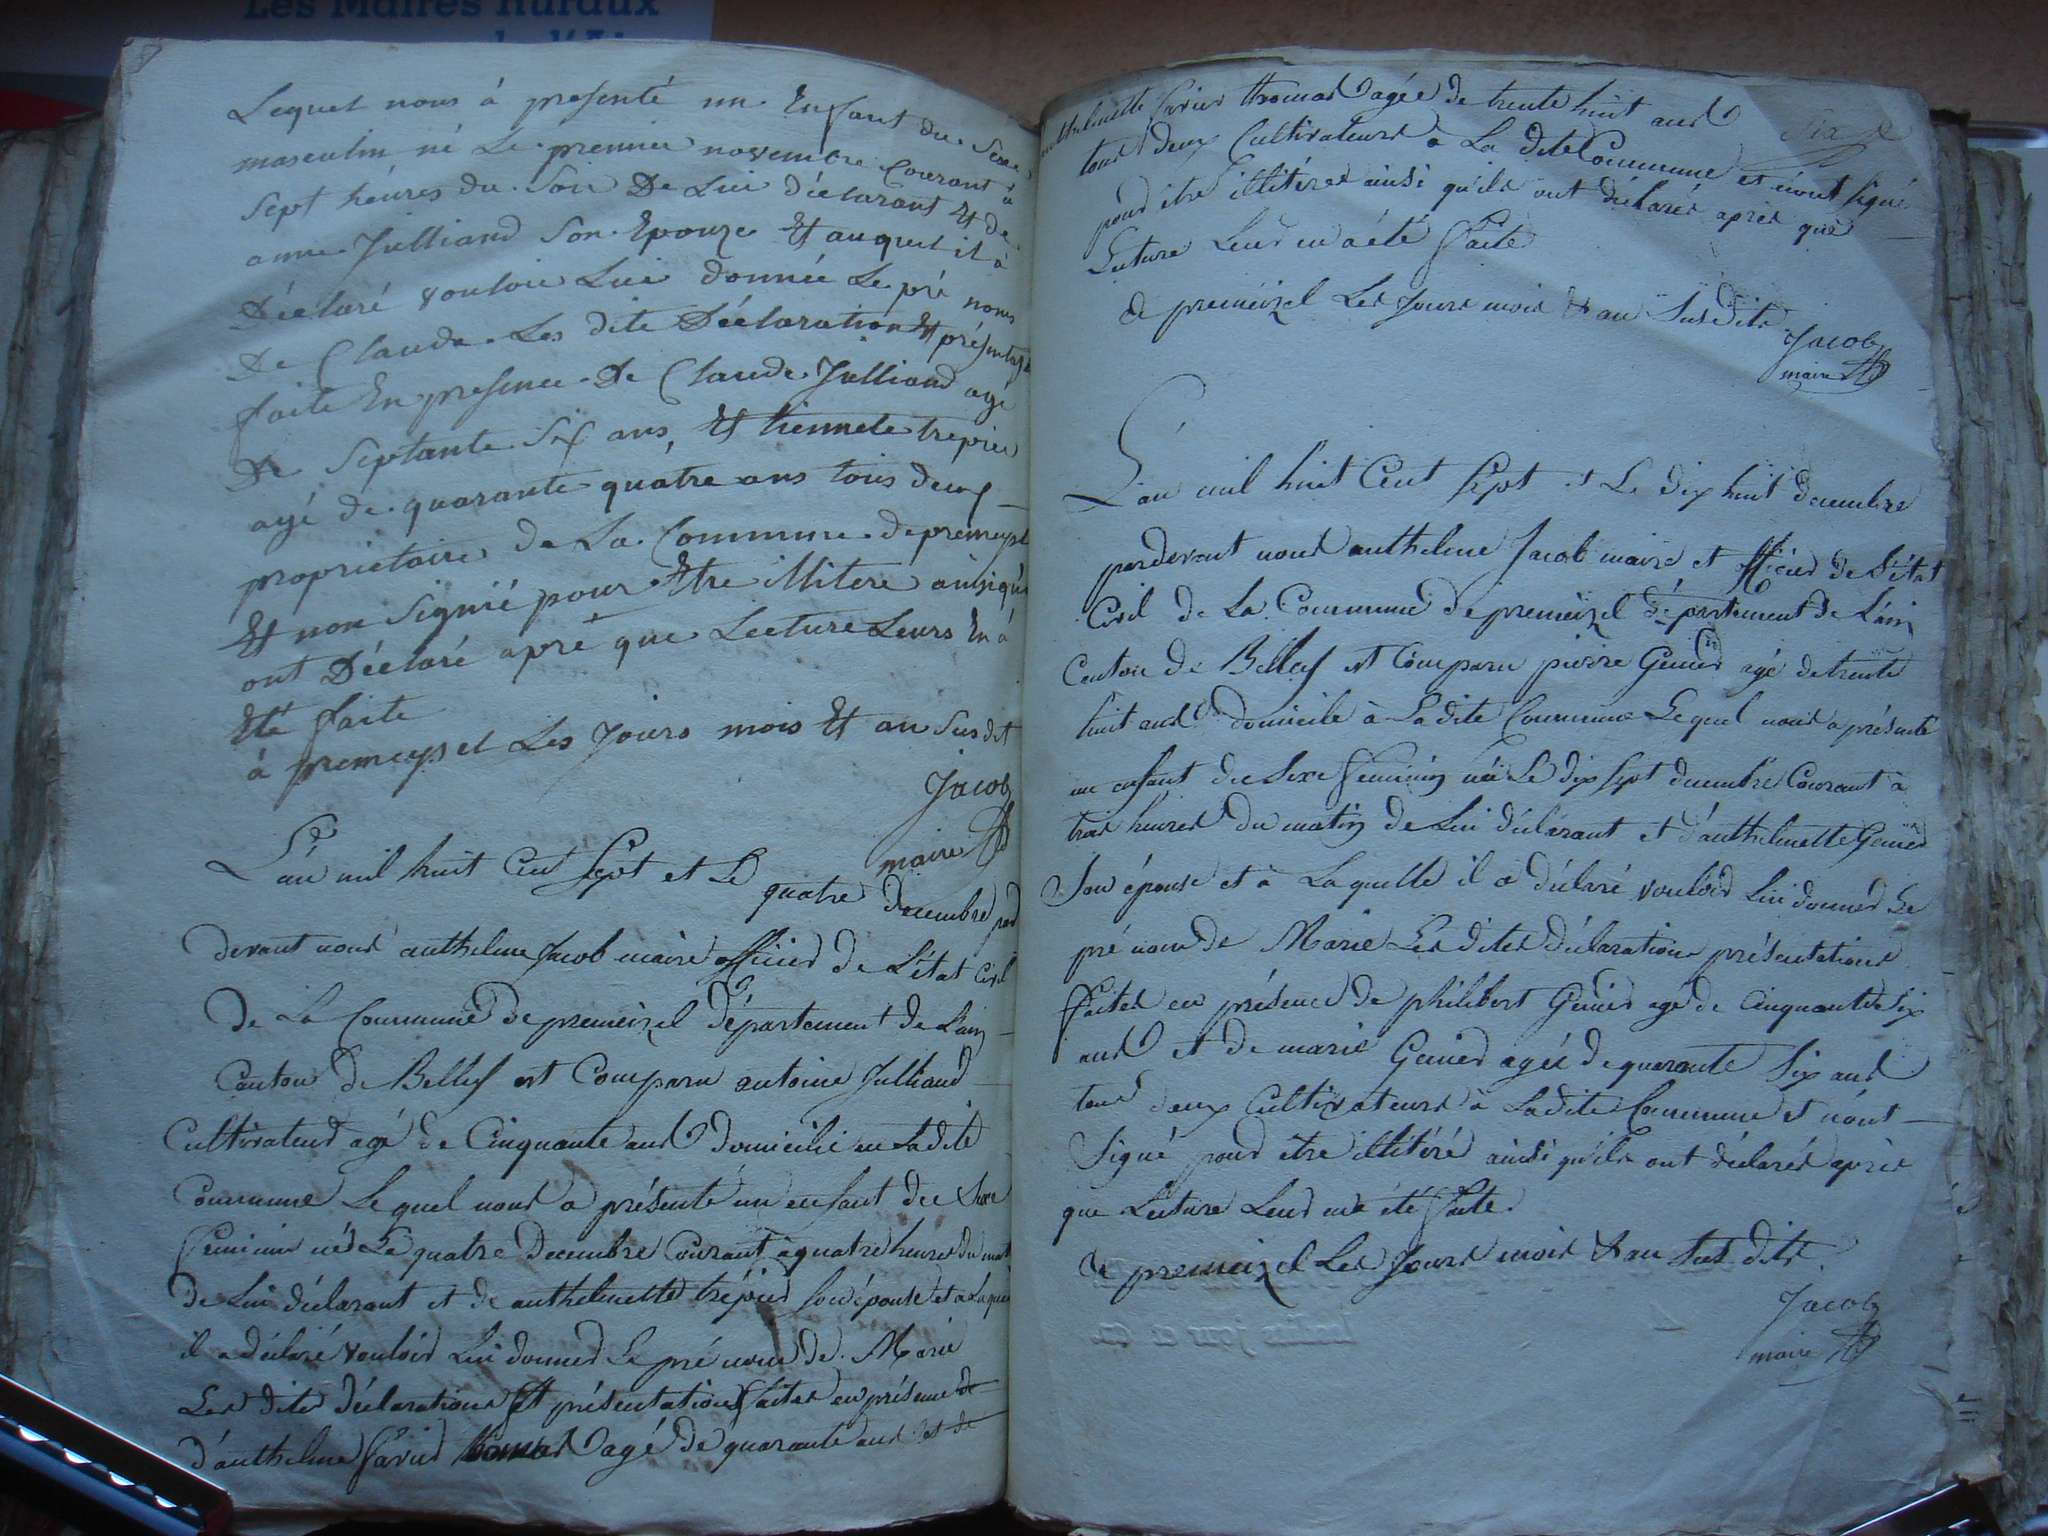 Les Maires Ruraux
de l'Ain
Lequel nous à presenté un Enfant du Sexe
masculin né Le premier novembre Courant à
Sept héures du Soir De Lui déclarant Et de
anne Julliand Son Epouze Et auquel il à
Déclaré vouloir Lui donnée Le pré noms
De Claude Les dite Déclaration Et présentati
faite En presence De Claude Julliand agé
De Septante Six ans, Et hiennele trepier
agé de quarante quatre ans tous deux
propriétaire de La Commune de premeysel
Et non Signié pour Etre illiteré ainsi qu'il
ont Déclaré apré que Lecture Leurs En à
Eté faite
à premeysel Les Jours mois Et an Susdit
Jacob
maire
L'an mil huit Cent Sept et Le quatre decembre par
devant nous anthelme Jacob maire officier de L'état Civil
de La Commune de premeizel département de L'ain
Canton de Belley est Comparu antoine Julliand
Cultivateur agé de Cinquante ans domicilié en Ladite
Commune Lequel nous a présenté un enfant du Sexe
féminin née Le quatre Decembre Courant à quatre heures du mat
de Lui déclarant et de anthelmette trépier Son épouse et à Laquel
il a déclaré vouloir Lui donner Le pré nom de Marie
Les dites déclarations Et présentations faites en présence de
d'anthelme Cavier thomas agé de quarante ans et de
anthelmette Cavier thomas agée de trente huit ans
Six
tous deux Cultivateurs à La dite Commune et n'ont Signé
pour être illitérés ainsi qu'ils ont déclarés après que
Lecture Leur en a été faite
à premeizel Les Jours mois & an Susdits
Jacob
maire
L'an mil huit Cent Sept et Le dix huit decembre
pardevant nous anthelme Jacob maire et officier de L'état
Civil de La Commune de premeizel département de L'ain
Canton de Belley est Comparu pierre Genier agé de trente
huit ans domicilé à Ladite Commune Lequel nous a présenté
un enfant du Sexe féminin née Le dix Sept decembre Courant à
trois heures du matin de Lui déclarant et d'anthelmette Genier
Son épouse et à Laquelle il a déclaré vouloir Lui donner Le
pré nom de Marie Les dites déclaration présentations
faites en présence de philibert Genier agé de Cinquante Six
ans et de marie Genier agée de quarante Six ans
tous deux Cultivateurs à Ladite Commune et n'ont
Signé pour être illitéré ainsi qu'ils ont déclarés après
que Lecture Leur en a été faite
à premeizel Les Jours mois & an Sus dits
Jacob
maire